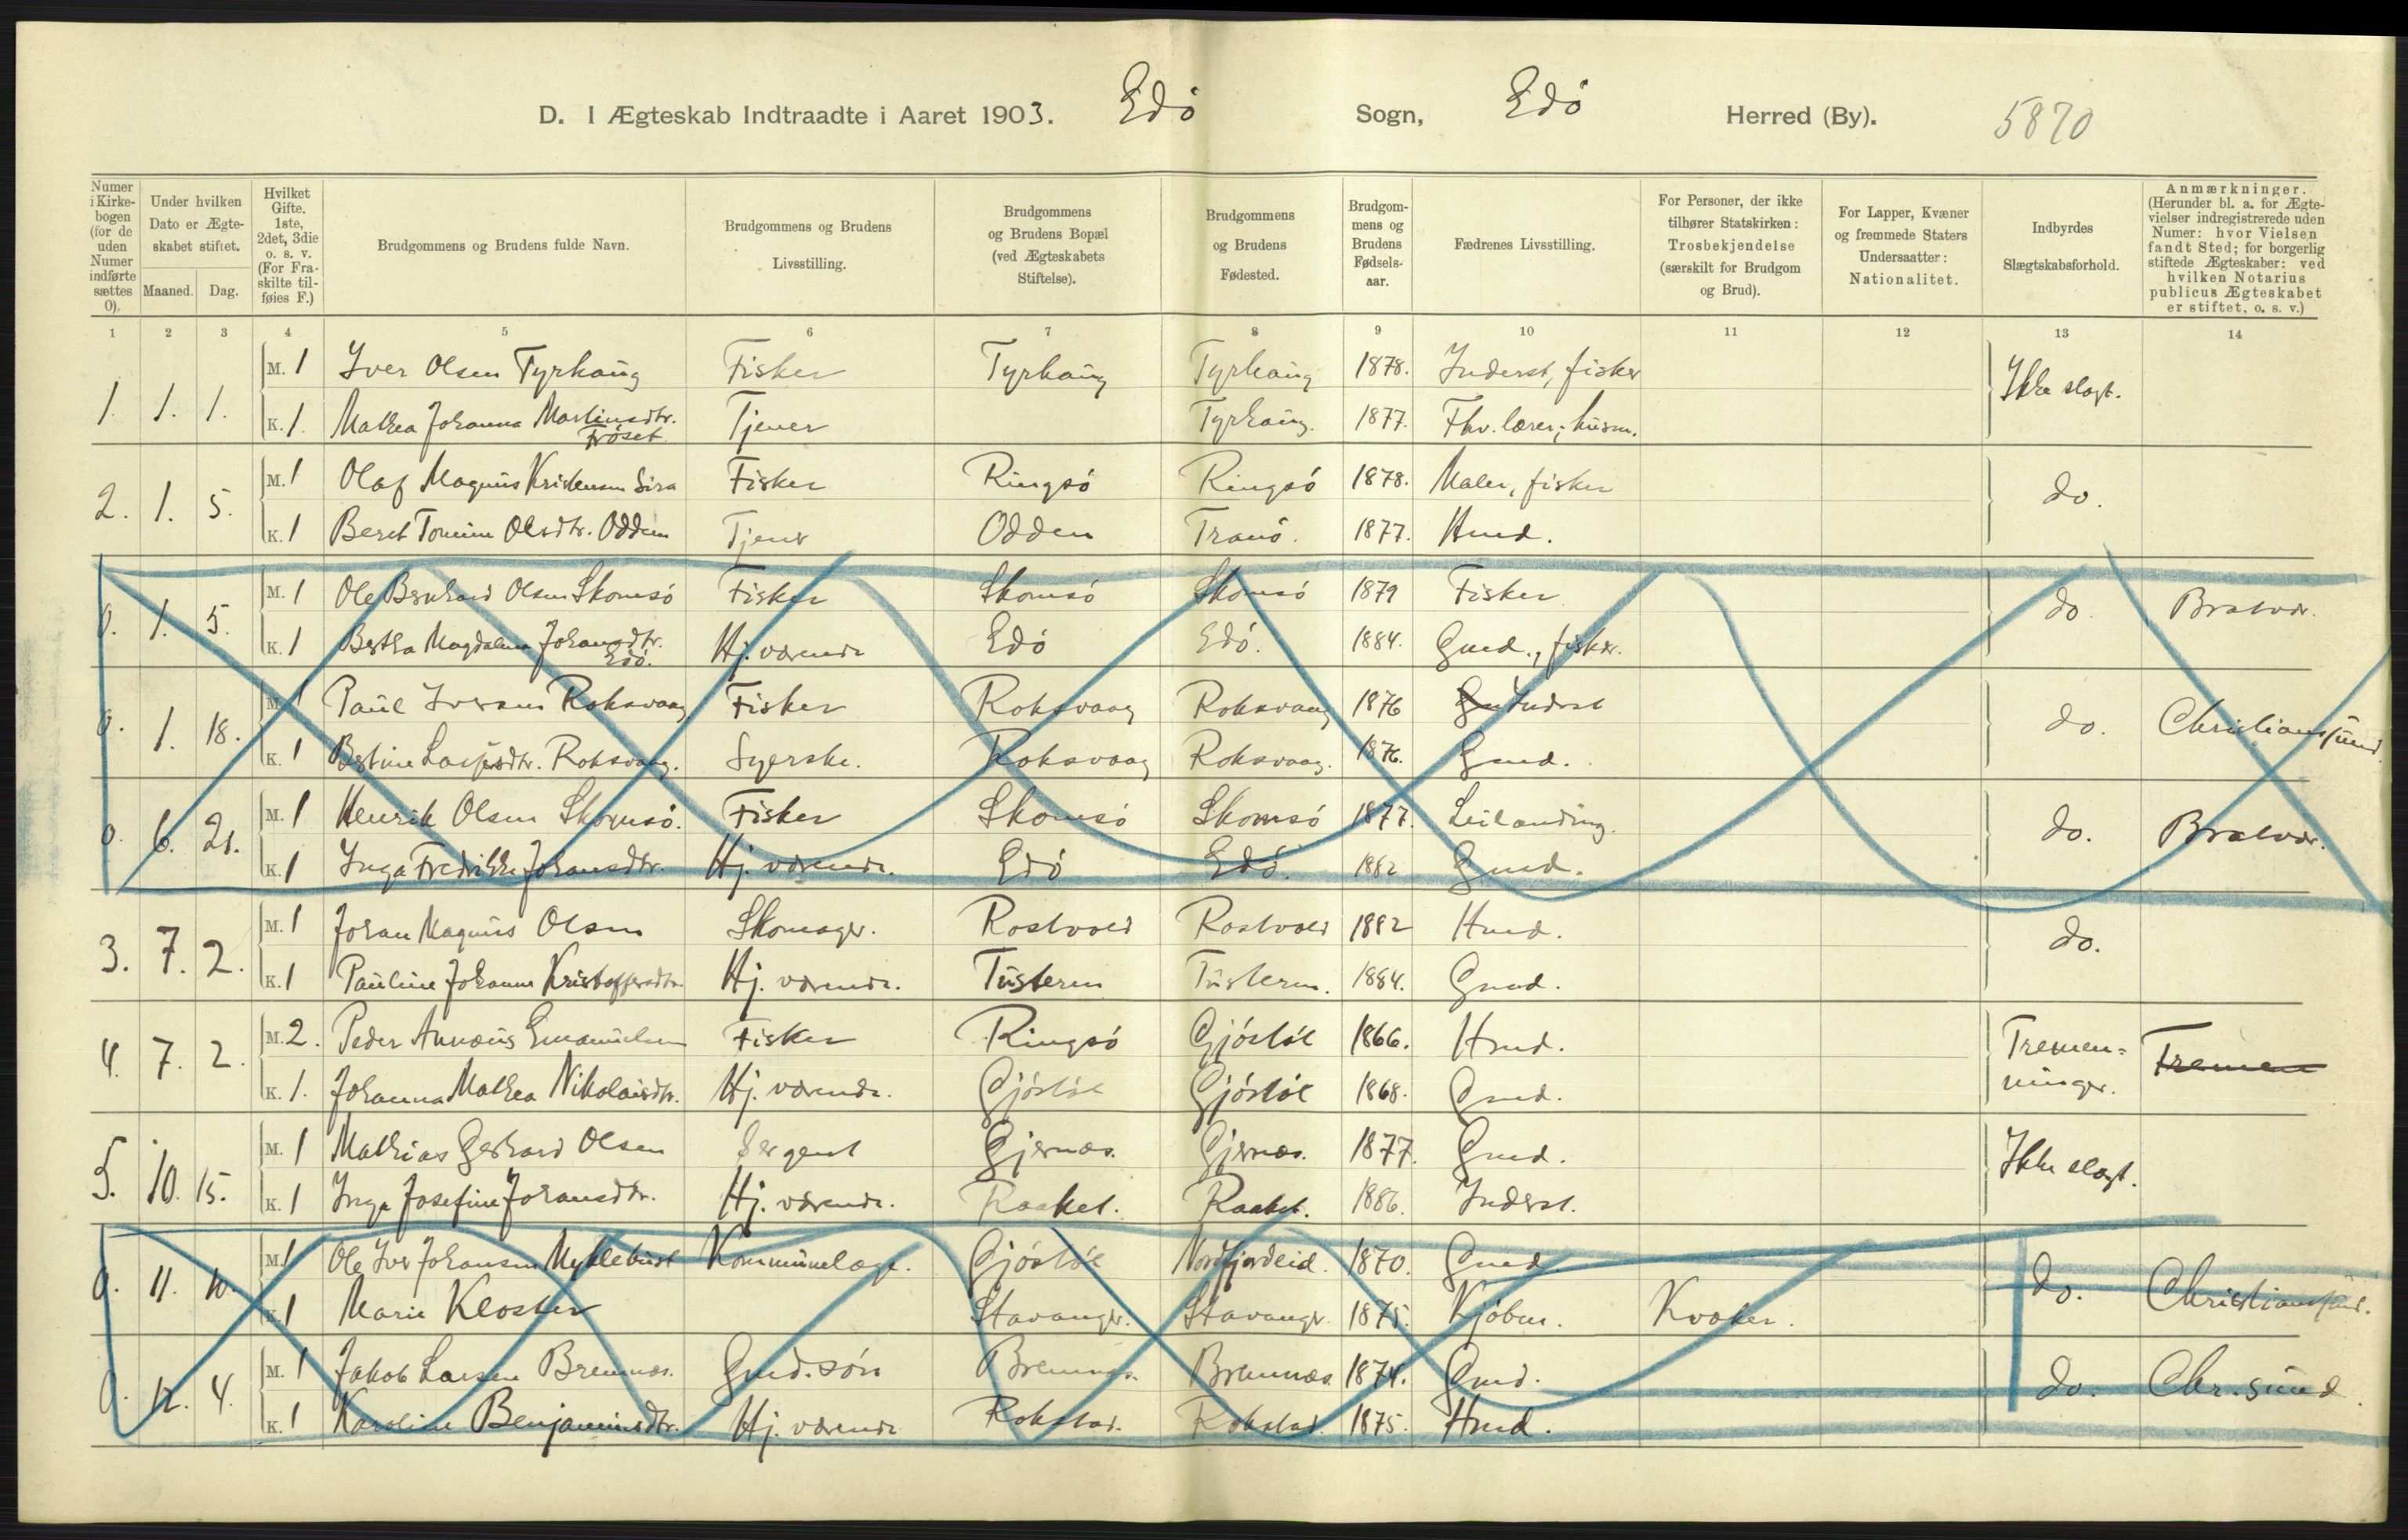 D. I Ægteskab Indtraadte i Aaret 1903. Edö Sogn, Edö Herred (By). 5870
Numer i Kirkebogen (for de uden Numer indførte sættes 0).
Under hvilken Dato er Ægteskabet stiftet.
Maaned. Dag.
Hvilket Gifte. 1ste, 2det, 3die o. s. v. (For Fraskilte tilføies F.)
Brudgommens og Brudens fulde Navn.
Brudgommens og Brudens Livsstilling.
Brudgommens og Brudens Bopæl (ved Ægteskabets Stiftelse).
Brudgommens og Brudens Fødested.
Brudgommens og Brudens Fødselsaar.
Fædrenes Livsstilling.
For Personer, der ikke tilhører Statskirken: Trosbekjendelse (særskilt for Brudgom og Brud).
For Lapper, Kvæner og fremmede Staters Undersaatter: Nationalitet.
Indbyrdes Slægtskabsforhold.
Anmærkninger. (Herunder bl. a. for Ægtevielser indregistrerede uden Numer: hvor Vielsen fandt Sted; for borgerlig stiftede Ægteskaber: ved hvilken Notarius publicus Ægteskabet er stiftet, o. s. v.)
1 2 3 4 5 6 7 8 9 10 11 12 13 14
1. 1. 1. M. 1 Iver Olsen Tyrhaug Fisker Tyrhaug Tyrhaug 1878. Inderst, fisker Ikke slægt.
K. 1. Mathea Johanna Martinusdtr. Frøset Tjener Tyrhaug. 1877. Fhv. lærer, husm.
2. 1. 5. M. 1 Olaf Magnus Kristensen Sira Fisker Ringsö Ringsö 1878. Maler, fisker do.
K. 1 Beret Tomine Olsdtr. Odden Tjener Odden Tranö. 1877. Hmd.
0. 1. 5. M. 1 Ole Bernhard Olsen Skomsö Fisker Skomsö Skomsö 1879 Fisker do. Bratvær.
K. 1 Bertha Magdalena Johansdtr. Edö. Hj. værende Edö Edö. 1884. Gmd., fisker.
0. 1. 18. M. 1 Paul Iversen Roksvaag Fisker Roksvaag Roksvaag 1876 Inderst do. Christianssund.
K. 1 Bertine Roksvaag. Syerske. Roksvaag Roksvaag. 1876. Gmd.
0. 6. 21. M. 1 Henrik Olsen Skomsö. Fisker Skomsö Skomsö 1877. Leilending. do. Bratvær.
K. 1 Inga Fredrikke Johansdtr. Hj. værende. Edö Edö. 1882 Gmd.
3. 7. 2. M. 1 Johan Magnus Olsen Skomager. Rostvold Rostvold 1882 Hmd. do.
K. 1 Pauline Johanna Kristoffersdtr. Hj. værende. Tusteren Tusteren. 1884. Gmd.
4. 7. 2. M. 2. Peder Annæus Emanuelsen Fisker Ringsö Gjöstöl 1866. Hmd. Tremenninger. Tremen
K. 1. Johanna Mathea Nikolaisdtr. Hj. værende. Gjöstöl Gjöstöl 1868. Gmd.
5. 10. 15. M. 1 Mathias Gerhard Olsen Sergent Gjernæs. Gjernæs. 1877. Gmd. Ikke slægt.
K. 1 Inga Josefine Johansdtr. Hj. værende. Raaket. Raaket. 1886. Inderst.
0. 11. 10. M. 1 Ole Iver Johansen Myklebust Kommunelæge. Gjöstöl Nordfjordeid. 1870. Gmd. do. Christianssund.
K. 1 Marie Kloster Stavanger. Stavanger. 1875. Kjöbm. Kvæker.
0. 12. 4. M. 1 Jakob Larsen Bremnæs. Gmd. sön Bremnæs. Bremnæs. 1874. Gmd. do. Chr.sund.
K. 1 Karoline Benjaminsdtr. Hj. værende Rokstad. Rokstad. 1875. Hmd.